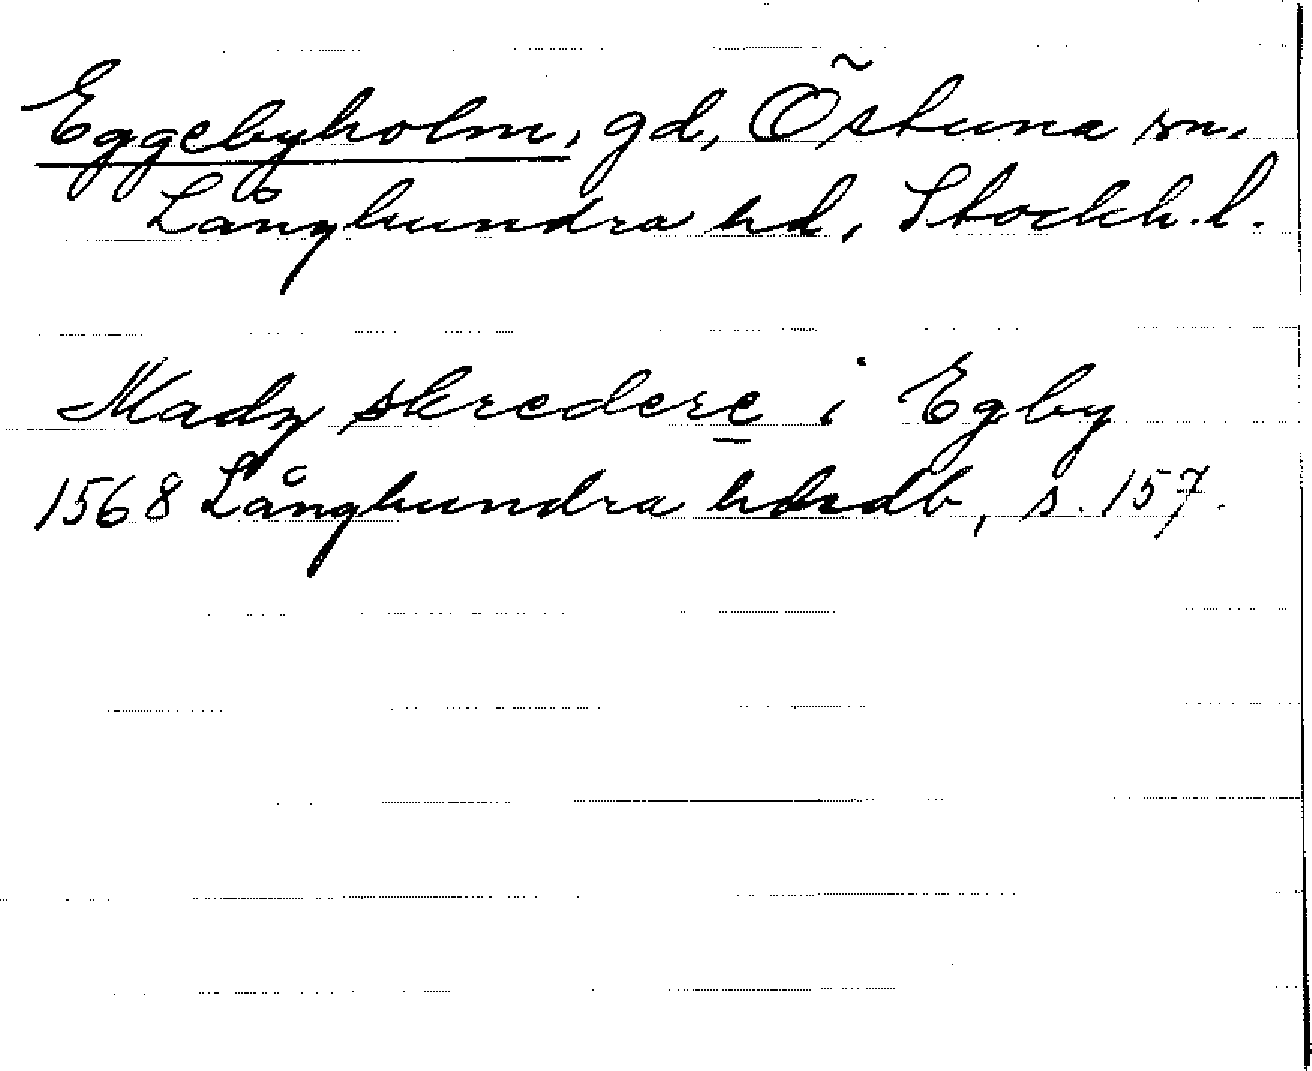 Eggebyholm, gd, Östuna sn.
Långhundra hd, Stockh. l.
Madz skredere i Egby
1568 Långhundra hdsdb, s. 157.